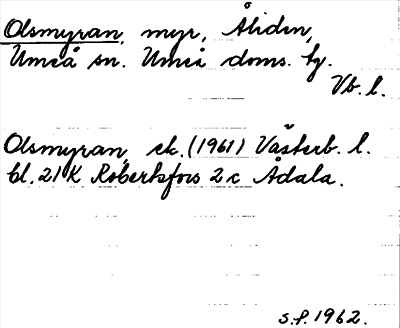 Olsmyran, myr, Åliden,
Umeå sn. Umeå doms. hg.
Vb. l.
Olsmyran, ek. (1961) Västerb. l.
bl. 21 K Robertsfors 2 c Ådala.
s.f. 1962.